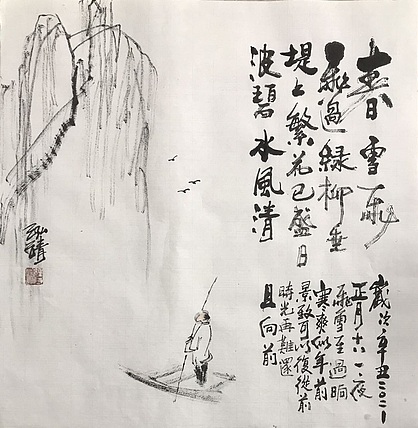 春雪飛
飛過綠柳垂
堤上繁花已盛日
波碧水風清
歲次辛丑二〇二一
正月十六一夜
飛雪至過晌
寒爽似年前
景致可以復從前
時光再難還
且向前